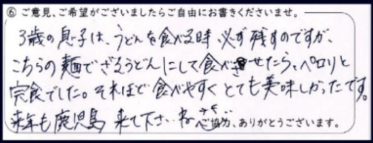 ⑥ ご意見、ご希望がございましたらご自由にお書きくださいませ。
3歳の息子は、うどんを食べる時 必ず残すのですが、
こちらの麺でざるうどんにして食べさせたら、ペロリと
完食でした。それほど食べやすく とても美味しかったです。
来年も鹿児島 来て下さいね
ご協力、ありがとうございます。